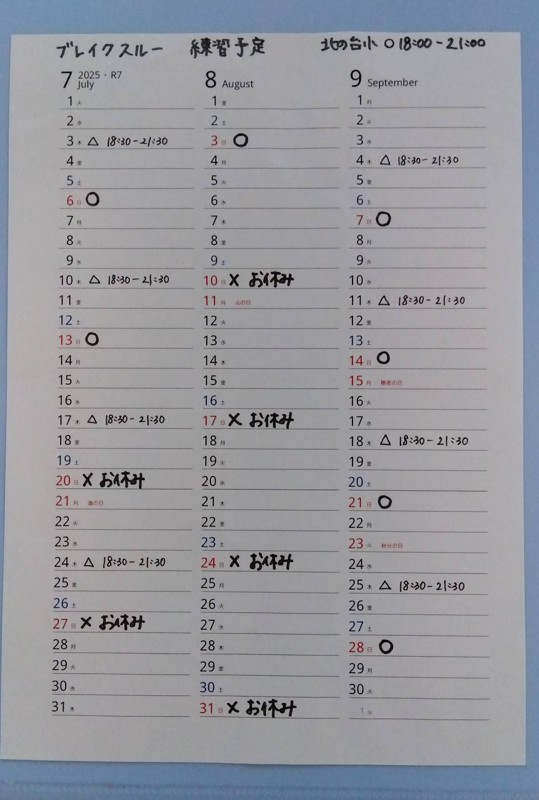 ブレイクスルー 練習予定 北の台小 ○18:00-21:00
7 2025・R7 July
1 火
2 水
3 木 △ 18:30-21:30
4 金
5 土
6 日 ○
7 月
8 火
9 水
10 木 △ 18:30-21:30
11 金
12 土
13 日 ○
14 月
15 火
16 水
17 木 △ 18:30-21:30
18 金
19 土
20 日 × お休み
21 月 海の日
22 火
23 水
24 木 △ 18:30-21:30
25 金
26 土
27 日 × お休み
28 月
29 火
30 水
31 木
8 August
1 金
2 土
3 日 ○
4 月
5 火
6 水
7 木
8 金
9 土
10 日 × お休み
11 月 山の日
12 火
13 水
14 木
15 金
16 土
17 日 × お休み
18 月
19 火
20 水
21 木
22 金
23 土
24 日 × お休み
25 月
26 火
27 水
28 木
29 金
30 土
31 日 × お休み
9 September
1 月
2 火
3 水
4 木 △ 18:30-21:30
5 金
6 土
7 日 ○
8 月
9 火
10 水
11 木 △ 18:30-21:30
12 金
13 土
14 日 ○
15 月 敬老の日
16 火
17 水
18 木 △ 18:30-21:30
19 金
20 土
21 日 ○
22 月
23 火 秋分の日
24 水
25 木 △ 18:30-21:30
26 金
27 土
28 日 ○
29 月
30 火
1 水